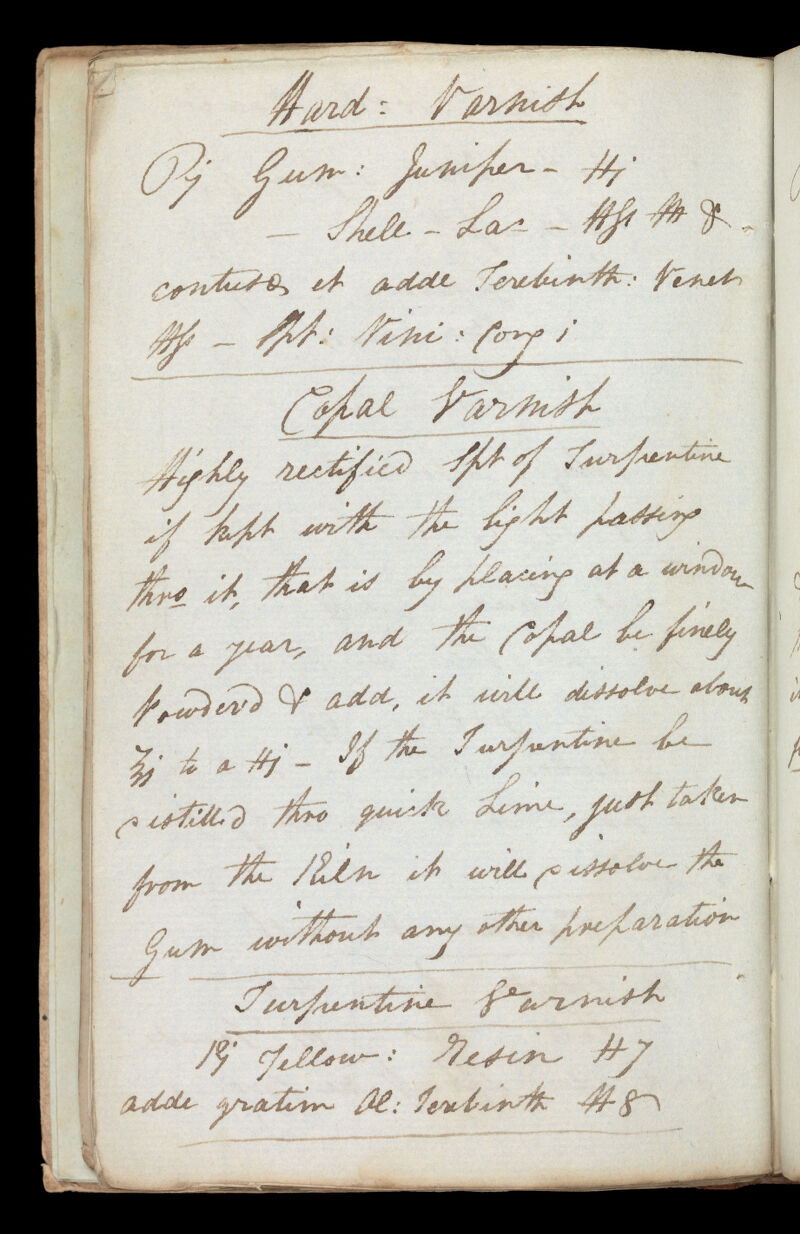 Hard: Varnish
℞ Gum: Juniper - ℔j
— Shell - Lac - ℔ſs &
contuse et adde Terebinth: Venet
℔ſs - Spt: Vini: Cong i
Copal Varnish
Highly rectified Spt of Turpentine
if kept with the light passing
thro it, that is by placing at a window
for a year, and the Copal be finely
Powder'd & add, it will dissolve about
℥j to a ℔j - If the Turpentine be
distilled thro quick Lime, just taken
from the Kiln it will dissolve the
Gum without any other preparation
Turpentine Varnish
℞ Yellow: Resin ℔7
adde gratim Ol: Terebinth ℔8